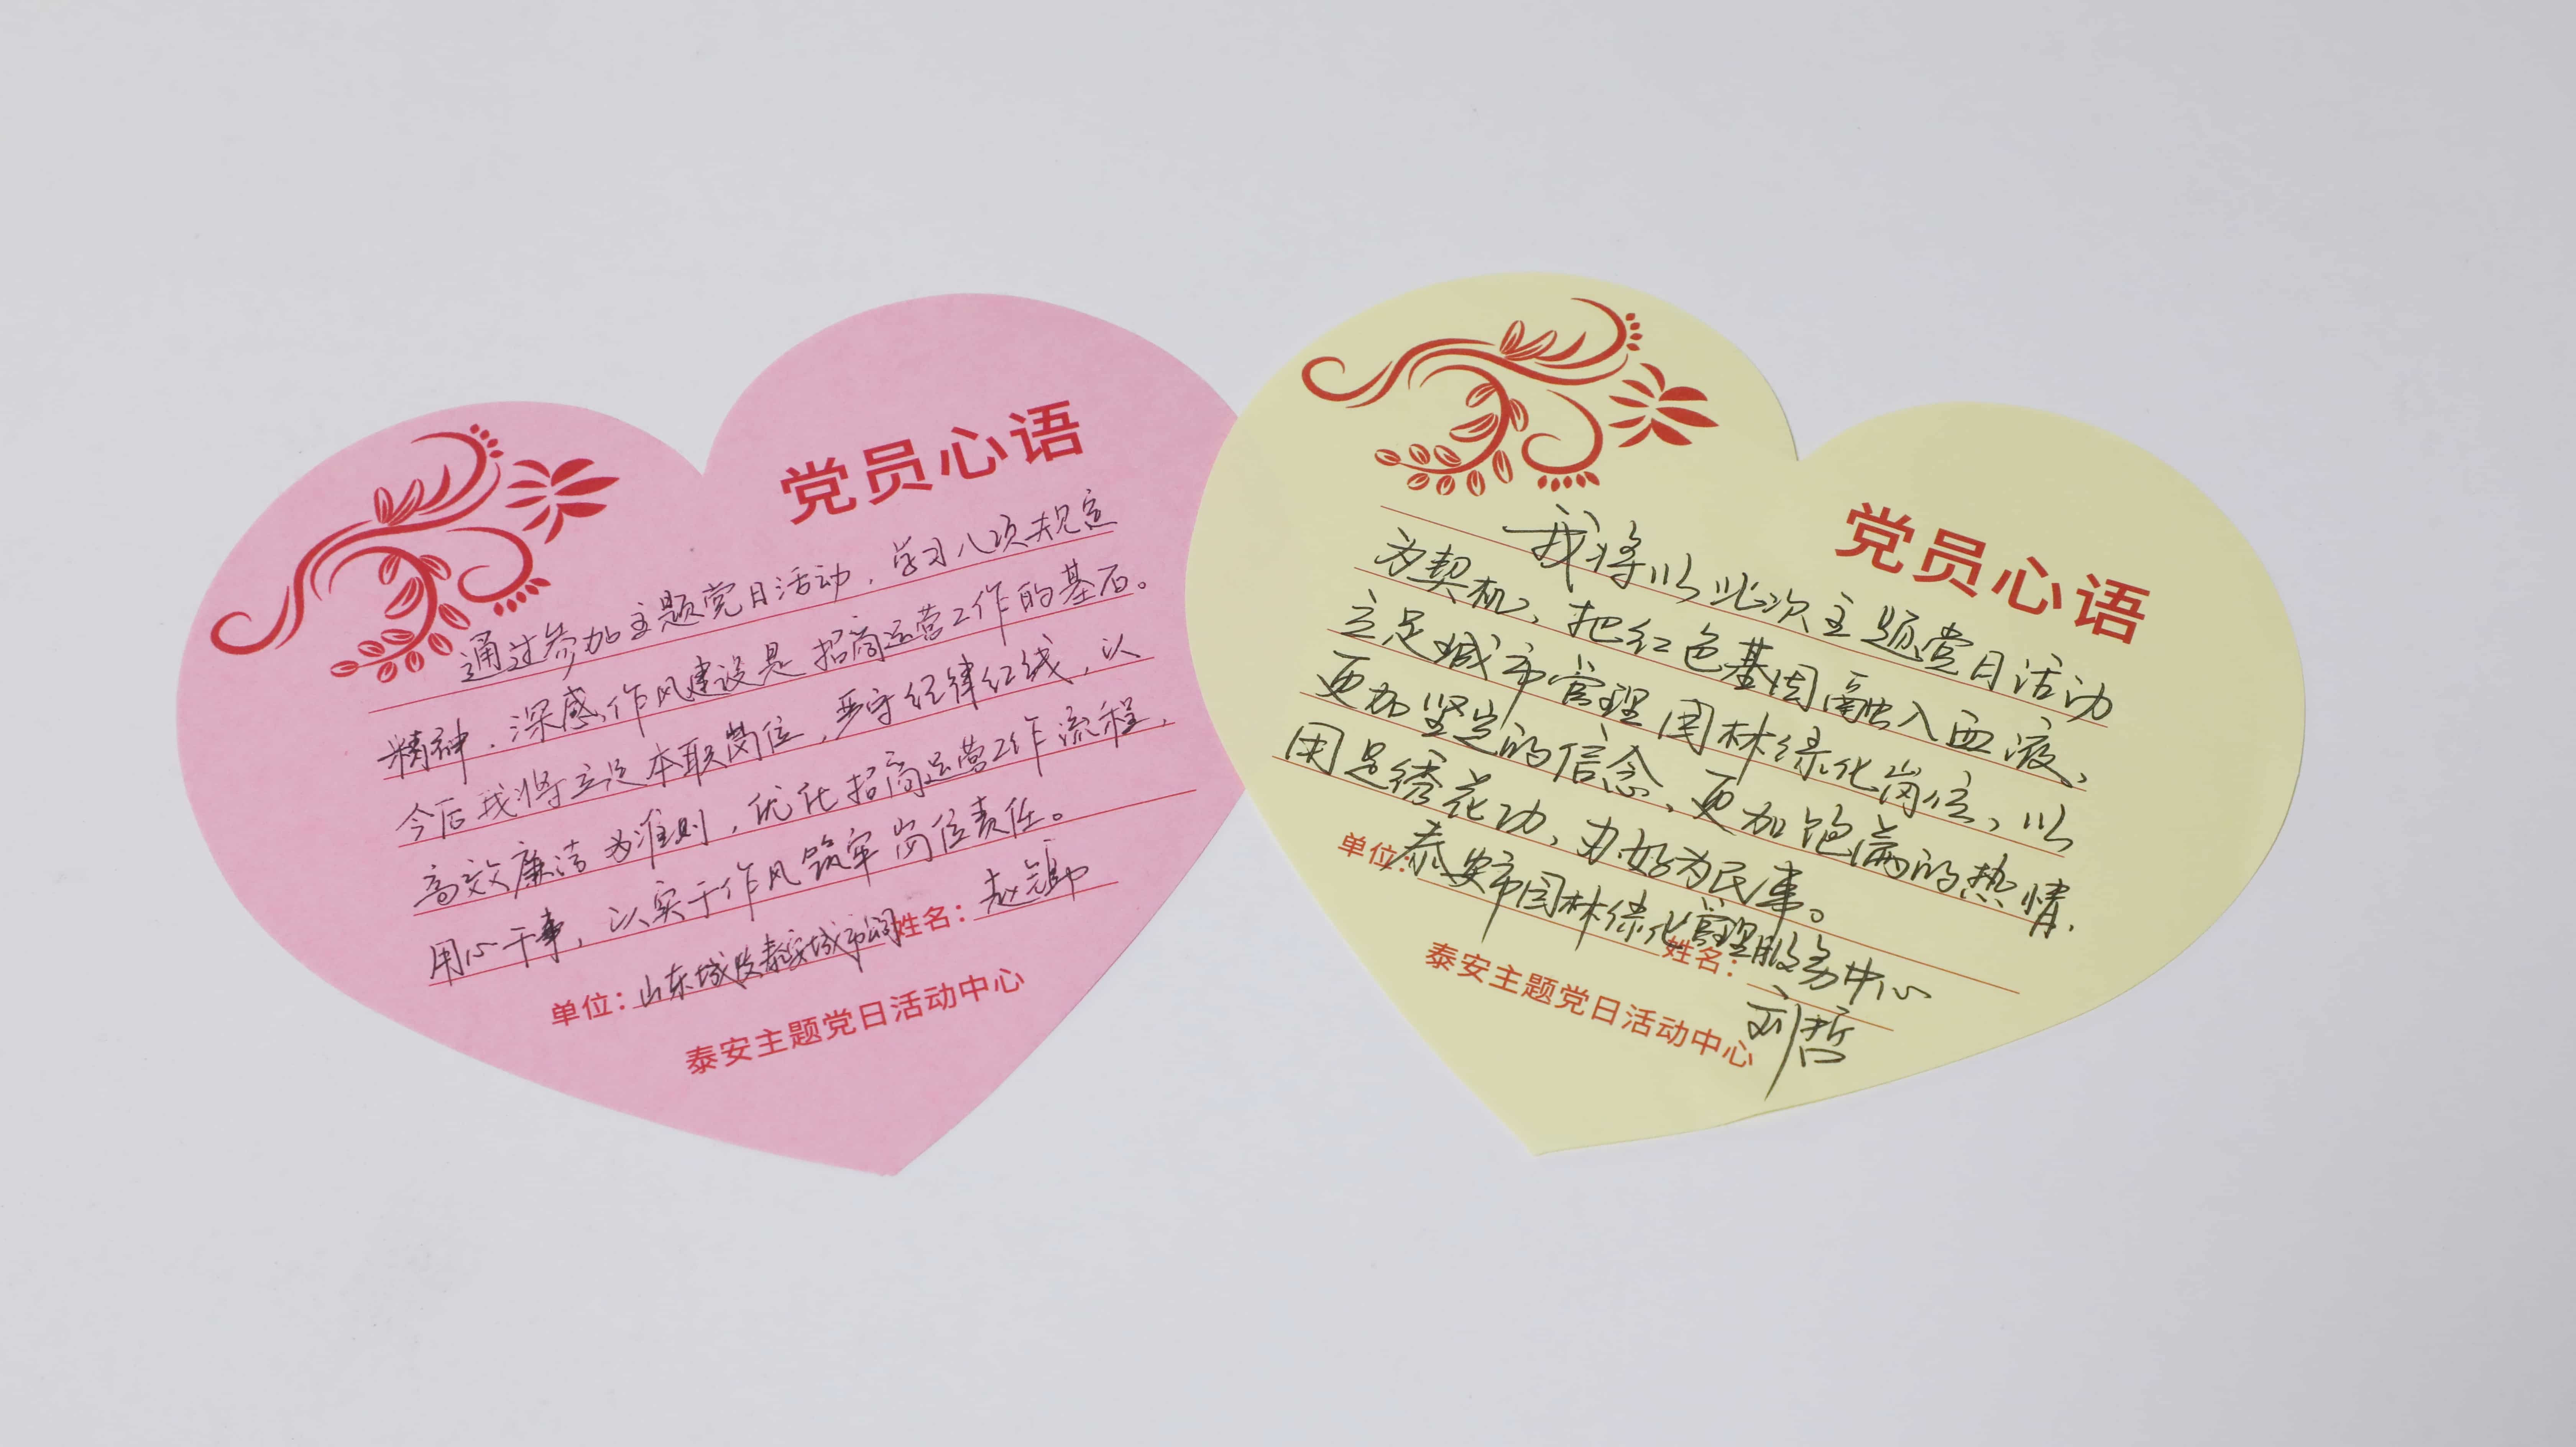 党员心语
通过参加主题党日活动，学习八项规定
精神，深感作风建设是招商运营工作的基石。
今后我将立足本职岗位，严守纪律红线，以
高效廉洁为准则，优化招商运营工作流程，
用心干事，以实干作风筑牢岗位责任。
单位：山东城发泰安城市公司 姓名：赵
泰安主题党日活动中心
党员心语
我将以此次主题党日活动
为契机，把红色基因融入血液、
立足城市管理园林绿化岗位，以
更加坚定的信念、更加饱满的热情、
用足绣花功、办好为民事。
单位：泰安市园林绿化管理服务中心
姓名：刘哲
泰安主题党日活动中心